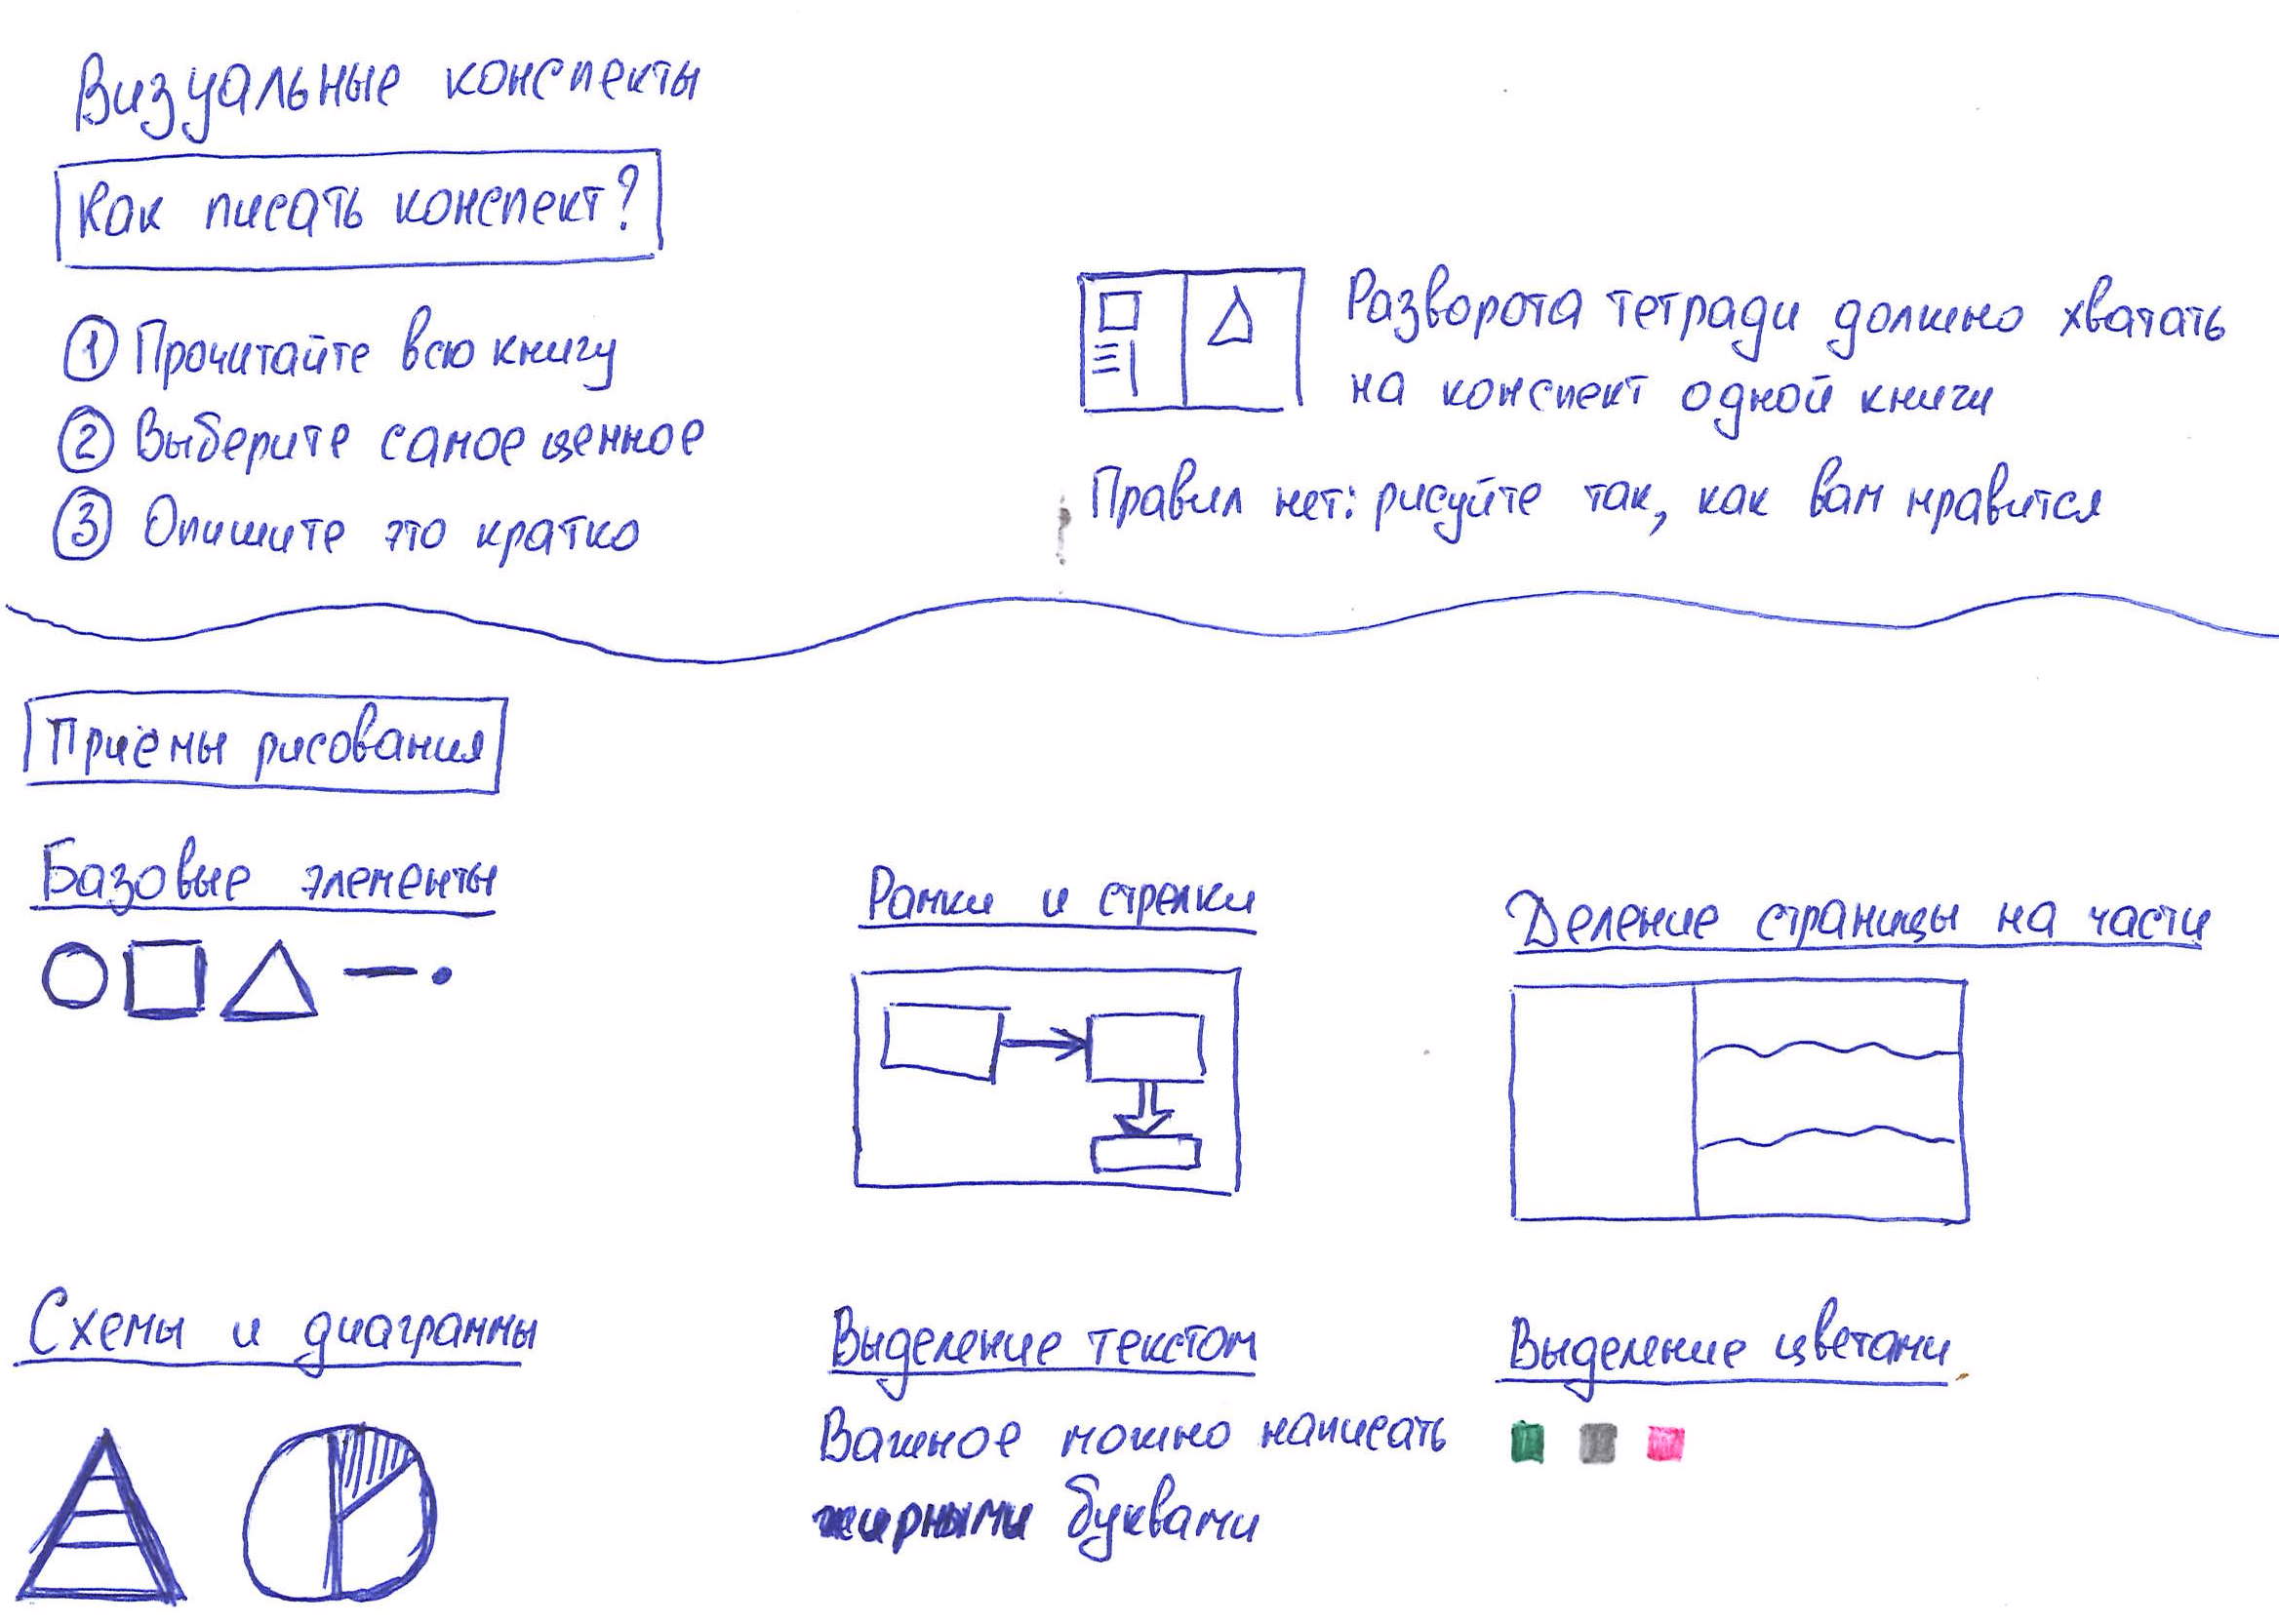 Визуальные конспекты
Как писать конспект?
1 Прочитайте всю книгу
2 Выберите самое ценное
3 Опишите это кратко
Разворота тетради должно хватать
на конспект одной книги
Правил нет: рисуйте так, как вам нравится
Приёмы рисования
Базовые элементы
Рамки и стрелки
Деление страницы на части
Схемы и диаграммы
Выделение текстом
Важное можно написать
жирными буквами
Выделение цветами